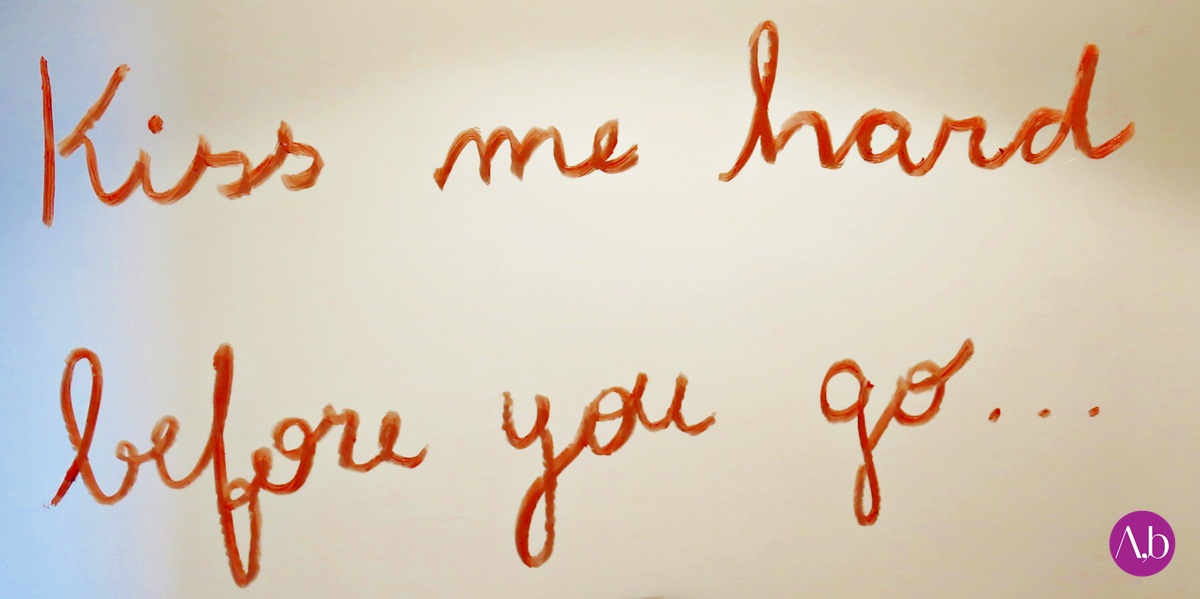 Kiss me hard
before you go...
A,b